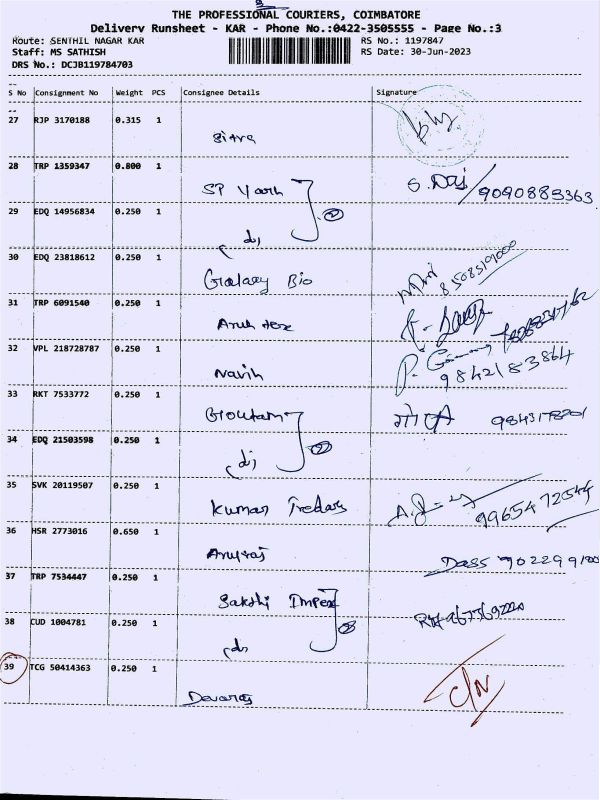 THE PROFESSIONAL COURIERS, COIMBATORE
Delivery Runsheet - KAR - Phone No.:0422-3505555 - Page No.:3
Route: SENTHIL NAGAR KAR
RS No.: 1197847
Staff: MS SATHISH
RS Date: 30-Jun-2023
DRS No.: DCJB119784703
S No Consignment No Weight PCS Consignee Details Signature
27 RJP 3170188 0.315 1
28 TRP 1359347 0.800 1
SP Yarn S. Das/9090889363
29 EDQ 14956834 0.250 1
(d)
30 EDQ 23818612 0.250 1
Galaxy Bio 8508519000
31 TRP 6091540 0.250 1
32 VPL 218728787 0.250 1
Navin 9842183864
33 RKT 7533772 0.250 1
Goutam
34 EDQ 21503598 0.250 1
(d)
35 SVK 20119507 0.250 1
Kumar Treders 9965472544
36 HSR 2773016 0.650 1
Anuraj Dass
37 TRP 7534447 0.250 1
Sakthi Impex
38 CUD 1004781 0.250 1
(d)
39 TCG 50414363 0.250 1
Devaraj C/N